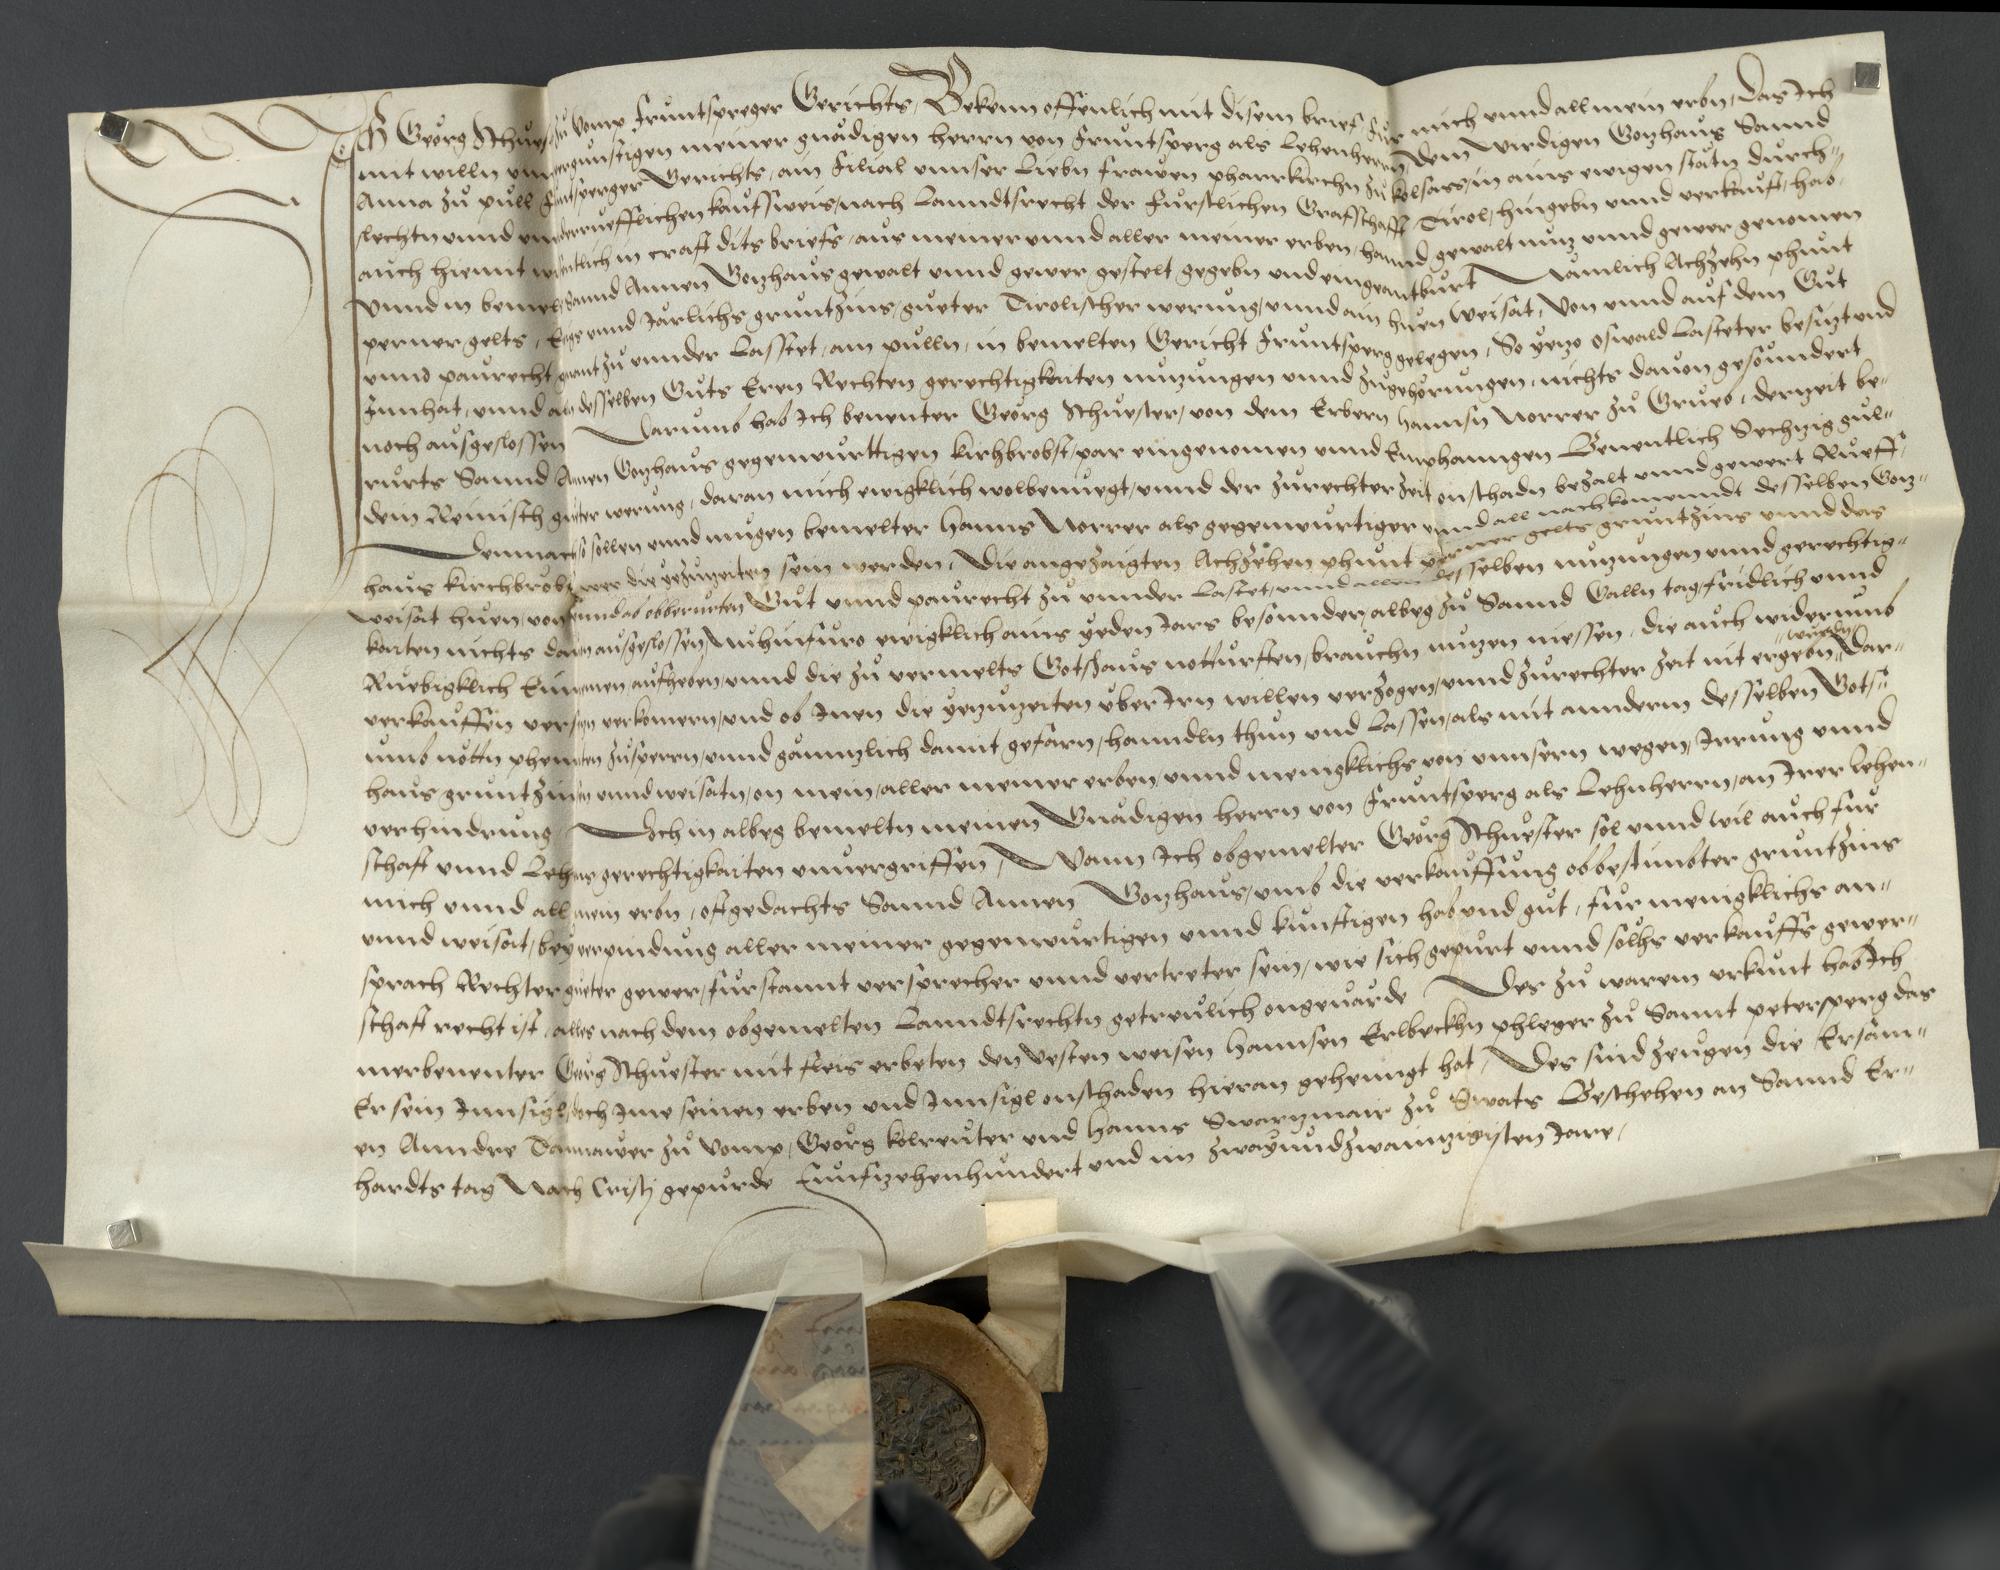 Ich Georg Schues zu Vomp Fruntsperger Gerichts, Bekenn offenlich mit disem brief fur mich unnd all mein erbn, das Ich
mit willn unnd vergunstigen meiner gnädigen herrn von Fruntsperg als Lehenherrn, dem wirdigen Gotzhaus Sannd
Anna zu pull Fruntsperger Gerichts, ain Filial unnser Liebn frawen pharrkirchn zu kolsass, in ains ewigen stätn durch„
slechtn unnd unwiderruefflichen kaufsweis, nach Lanndtsrecht der Furstlichen Grafschafft Tirol, hingebn unnd verkauft, hab,
auch hiemit wissentlich in craft dits briefs, aus meiner unnd aller meiner erben, hannd gewalt nutz unnd gewer genomen
unnd in bemelts Sannd Annen Gotzhaus gewalt unnd gewer gestelt gegebn und eingeantburt Nämlich Achzehn phunt
perner gelts, Ewigs unnd Järlichs gruntzins, gueter Tirolischer werung, unnd ain huen weisat, Von unnd auf dem Gut
unnd paurecht genant zu unnder Lasstet, am pulln, in bemelten Gericht Fruntsperg gelegen, So yetzo Oswald Lasteter besitzt und
Innhat, unnd aller desselben Guts Eren Rechten gerechtigkaiten nutzungen unnd Zugehörungen, nichts davon gesoundert
noch ausgeslossen Darumb hab Ich benenter Georg Schuester, von dem Erbern hannsn Norrer zu Grueb, derzeit be„
rurts Sannd Annen Gotzhaus gegenwurttigen kirchbrobst, par eingenomen unnd Emphanngen Benentlich Sechtzig gul„
dem Reinisch gueter werung, daran mich ewigklich wolbenuegt, unnd der zu rechter zeit on schadn bezalt unnd gewert Rueff,
Dermassn so sollen unnd mugen bemelter hanns Norrer als gegenwurtiger unnd all nachkomenndt desselben Gotz„
haus kirchbröbst wer die yezuzeiten sein werden, Die angezaigten Achzehen phunt perner gelts gruntzins unnd das
weisat huen, von unnd ab obberurten Gut unnd paurecht zu unnder Lastet, unnd allen desselben nutzungen unnd gerechtig„
kaiten nichts davon ausgeslossen, Nu hinfuro ewigklich ains yeden Jars besonnder, albeg zu Sannd Galln tag, fridlich unnd
Ruebigklich Einnemen, aufheben, unnd die zu vermelts Gotzhaus notturften, brauchn nutzen niessen, die auch widerumb
verkauffen versetzen verkomern, und ob Inen die yezuzeiten uber Irn willen verzogen, unnd zu rechter zeit nit ergebn wurdn Dar„
umb nöttn phenndten zusperrn, unnd gänntzlich damit gefarn, hanndln thun und Lassen, als mit annderm desselben Gots„
haus gruntzinsen unnd weisatn, on mein, aller meiner erben unnd menigklichs von unnsern wegen, Irrung unnd
verhindrung Doch in albeg bemeltn meinen Gnädigen herrn von Fruntsperg als Lehnherrn, an Irer lehen„
schaft unnd Lehensgerechtigkaiten unvergriffen, Wann Ich obgemelter Georg Schuester sol unnd wil auch fur
mich unnd all mein erbn, oftgedachts Sannd Annen Gotzhaus, umb die verkauffung obbestimbter gruntzins
unnd weisat, bey verpindung aller meiner gegenwurtigen unnd kunftigen hab und gut, fur menigklichs an„
sprach Rechter gueter gewer, furstannt versprecher unnd vertreter sein, wie sich gepurt unnd solhs verkauffs gewer„
schaft recht ist, alles nach dem obgemelten Lanndtsrechtn getreulich ongevärde Des zu warem urkunt hab Ich
merbenenter Georg Schuester mit fleis erbeten den Vesten weisen hannsen Erlbeckhn phleger zu Sannt petersperg das
Er sein Innsigl, doch Ime seinen erben und Innsigl on schaden hieran gehenngt hat, Des sind zeugen die Ersam„
en Anndre Tannawer zu Vomp, Georg kolreuter und Hanns Swartzmair zu Swats Beschehen an Sannd Er„
hardts tag Nach Cristj gepurde Funfzehenhundert und im zwayundzwaintzigisten Jare,